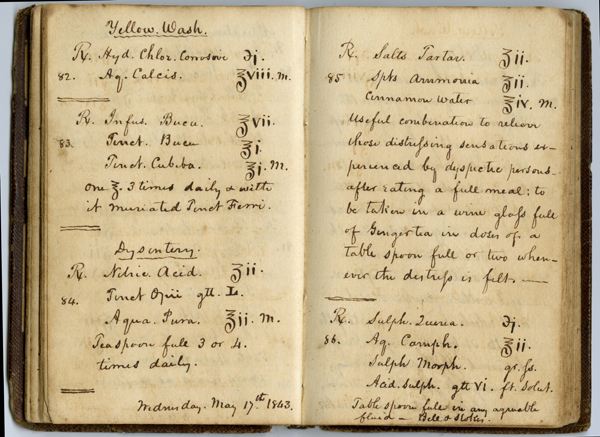 Yellow. Wash.
℞. Hyd. Chlor. Corrosive ℈j.
82. Aq. Calcis. ℥viii. M.
℞. Infus. Bucu. ℥vii.
83. Tinct. Bucu ℥i.
Tinct. Cubeba. ℥j. M.
one ℥. 3 times daily & with
it muriated Tinct Ferri.
Dysintery.
℞. Nitric. Acid. ʒii.
84. Tinct Opii gtt. L.
Aqua. Pura. ℥ii. M.
Teaspoon full 3 or 4.
times daily.
Wednesday. May 17th. 1843.
℞. Salts Tartar. ʒii.
85 Spts Ammonia ʒii.
Cinnamon Water ℥iv. M.
Useful combination to relieve
those distressing sensations ex-
perienced by dyspectic persons
after eating a full meal; to
be taken in a wine glass full
of Ginger tea in doses of. a
table spoon full or two when-
ever the distress is felt.
℞. Sulph. Quina. ℈j.
86. Aq. Camph. ℥ii.
Sulph Morph. gr. fs.
Acid. Sulph. gtt vi. ft. Solut.
Table spoon full in any agreeable
fluid – Bell & Stokes.